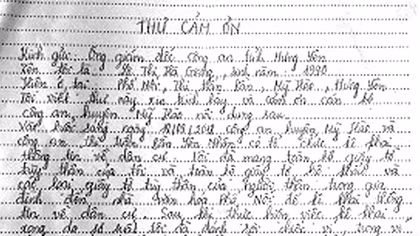 THƯ CẢM ƠN
Kính gửi: Ông giám đốc công an tỉnh Hưng Yên
Tên tôi là : Lê Thị Hà , sinh năm : 1990
Hiện ở tại : Phố Nối, Thị trấn Bần, Mỹ Hào, Hưng Yên
Tôi viết thư này xin trình bày và cảm ơn cán bộ
công an huyện Mỹ Hào nội dung sau:
Vào buổi sáng ngày công an huyện Mỹ Hào và
công an thị trấn Bần Yên Nhân có tổ chức kê khai
thông tin về dân cư. Tôi đã mang toàn bộ giấy tờ
tùy thân của tôi và toàn bộ giấy tờ hộ khẩu và
các loại giấy tờ tùy thân của người thân trong gia
đình đến nhà văn hóa Phố Nối để kê khai thông
tin về dân cư. Sau khi thực hiện việc kê khai
xong do sơ xuất tôi đã đánh rơi chiếc ví, trong ví